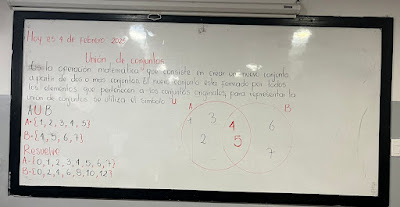 Hoy es 4 de Febrero 202
Unión de conjuntos
Es la operación matemática que consiste en crear un nuevo conjunto
a partir de dos o más conjuntos. El nuevo conjunto está formado por todos
los elementos que pertenecen a los conjuntos originales, para representar la
unión de conjuntos se utiliza el símbolo U
A U B
A={1,2,3,4,5}
B={4,5,6,7}
Resuelve
A={0,1,2,3,4,5,6,7}
B={0,2,4,6,8,10,12}
A B
1 3 4 6
2 5 7